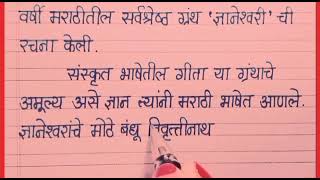 वर्षी मराठीतील सर्वश्रेष्ठ ग्रंथ 'ज्ञानेश्वरी' ची
रचना केली.
संस्कृत भाषेतील गीता या ग्रंथाचे
अमूल्य असे ज्ञान त्यांनी मराठी भाषेत आणले.
ज्ञानेश्वरांचे मोठे बंधू निवृत्तीनाथ